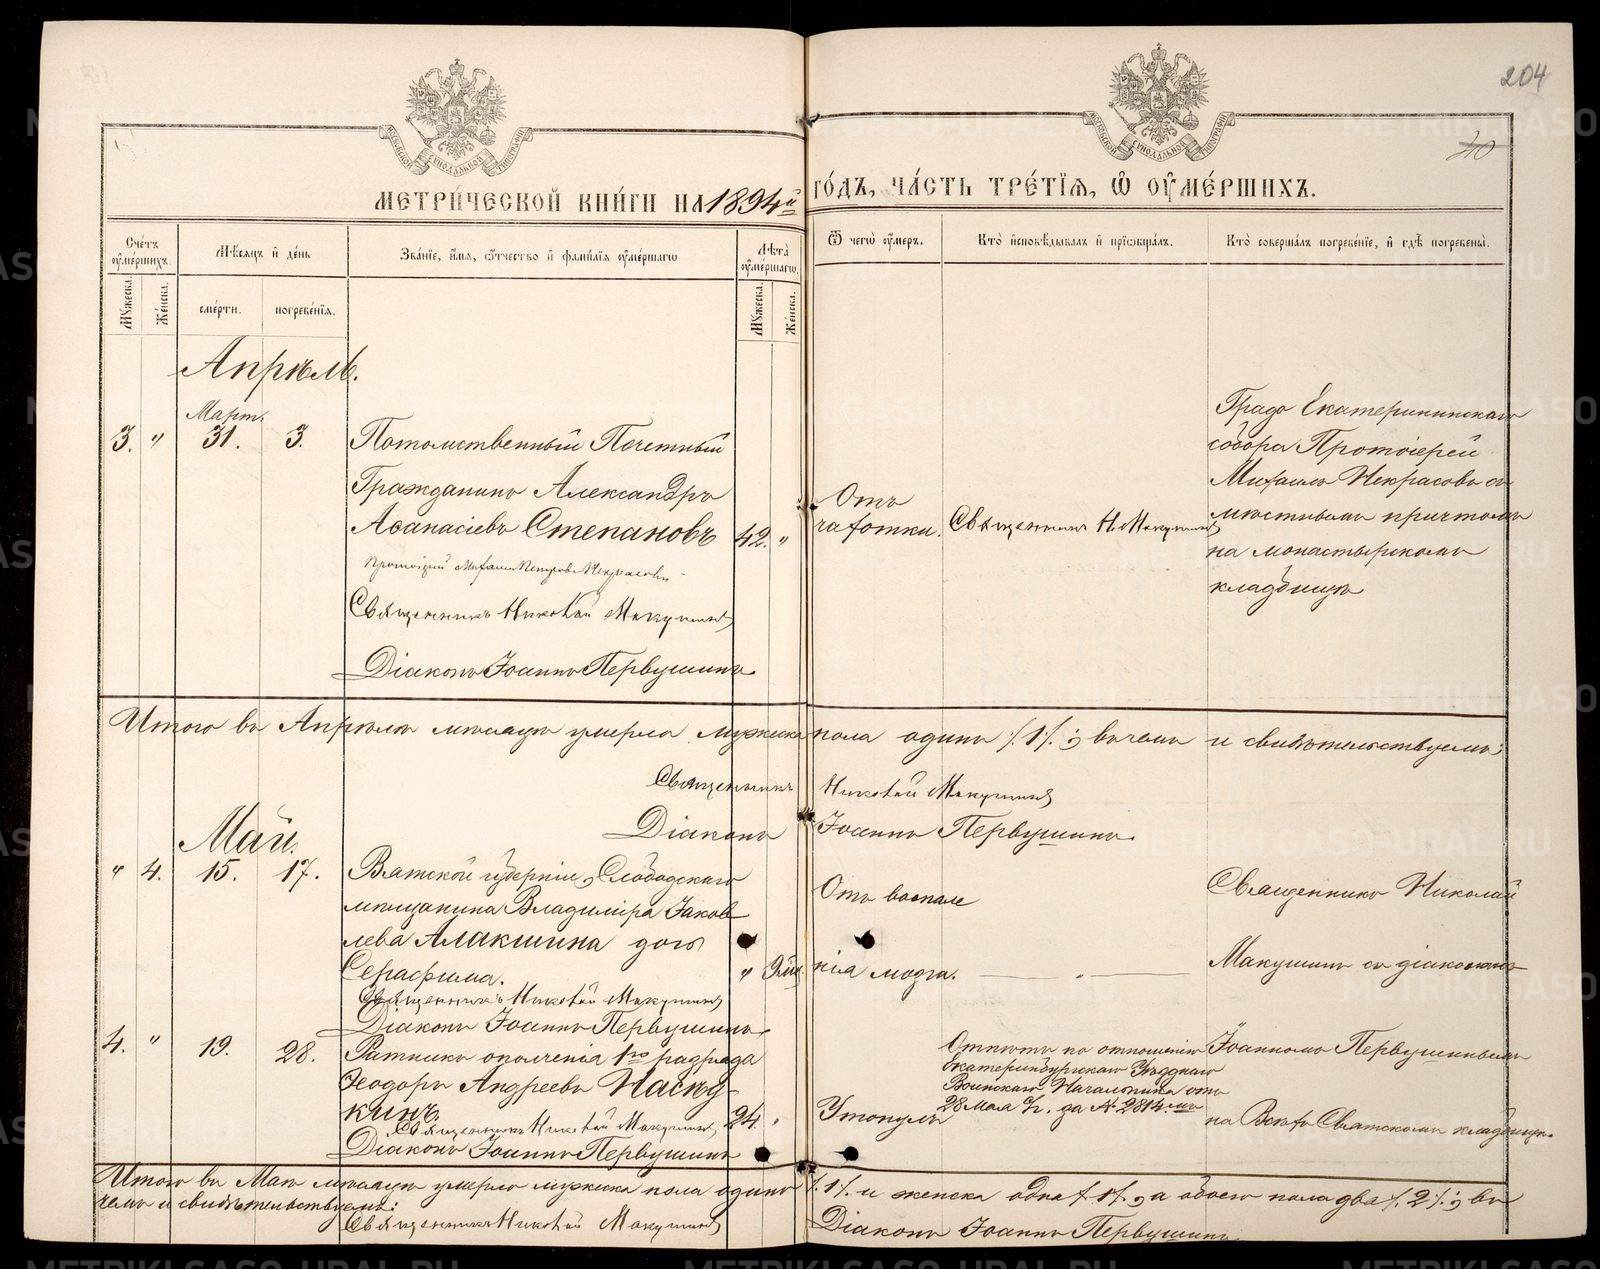 204
40
МЕТРИ́ЧЕСКОЙ КНИ́ГИ НА 1894й ГО́ДЪ, ЧА́СТЬ ТРЕ́ТІѦ, Ѡ ОУМЕ́РШИХЪ.
Сче́тъ оуме́ршихъ.
Мѣ́сѧцъ и де́нь
Зва́нїе, и́мѧ, ѻ́тчество и фами́лїѧ оуме́ршагѡ
Лѣ́та оуме́ршагѡ.
Ѿ чегѡ̀ оу́меръ.
Кто̀ исповѣ́дывалъ и прїѡбща́лъ.
Кто̀ соверша́лъ погребе́нїе, и гдѣ̀ погребены̀.
Му́жеска. Же́нска.
сме́рти. погребе́нїѧ.
Му́жеска. Же́нска.
Апрѣль.
Март.
3. " 31. 3.
Потомственный Почетный
Гражданинъ Александръ
Аѳанасіевъ Степановъ 42. "
Протоіерей Михаилъ Петровъ Некрасовъ
Священникъ Николай Макушинъ
Діаконъ Іоаннъ Первушинъ
Отъ
чахотки.
Священникъ Н. Макушинъ
Градо Екатерининскаго
собора Протоіерей
Михаилъ Некрасовъ съ
мѣстнымъ причтомъ
на монастырскомъ
кладбищѣ
Итого въ Апрѣлѣ мѣсяцѣ умерло мужеска пола одинъ /.1/.; въ чемъ и свидѣтельствуемъ:
Священникъ Николай Макушинъ
Діаконъ Іоаннъ Первушинъ.
Май.
" 4. 15. 17.
Вятской губерніи, Слободскаго
мѣщанина Владиміра Іаков
лева Алакшина дочь
Серафима.
Священникъ Николай Макушинъ
Діаконъ Іоаннъ Первушинъ.
Отъ воспале
нія мозга.
Священникъ Николай
Макушинъ съ діакономъ
4. " 19. 28.
Ратникъ ополченія 1го разряда
Ѳеодоръ Андреевъ Наску
кинъ 24. "
Священникъ Николай Макушинъ
Діаконъ Іоаннъ Первушинъ
Утонулъ
Отпѣтъ по отношенію
Екатеринбургскаго Уѣзднаго
Воинскаго Начальника отъ
28 Мая с/г. за № 2814.мъ
Іоанномъ Первушинымъ
на Всѣхъ Святскомъ кладбищѣ.
Итого въ Маѣ мѣсяцѣ умерло мужеска пола одинъ /.1/. и женска одна /.1/., а обоего пола два /.2/.; въ
чемъ и свидѣтельствуемъ:
Священникъ Николай Макушинъ
Діаконъ Іоаннъ Первушинъ.